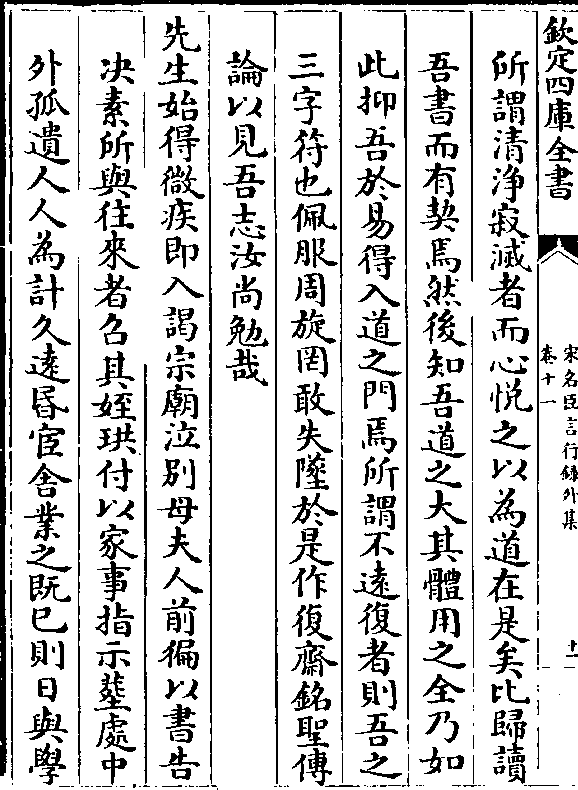 欽定四庫全書
宋名臣言行錄外集
卷十一
十一
所謂清淨寂滅者而心悅之以為道在是矣比歸讀
吾書而有契焉然後知吾道之大其體用之全乃如
此抑吾於易得入道之門焉所謂不遠復者則吾之
三字符也佩服周旋罔敢失墜於是作復齋銘聖傳
論以見吾志汝尚勉哉
先生始得微疾即入謁宗廟泣別母夫人前徧以書告
决素所與往來者召其姪珙付以家事指示塟處中
外孤遺人人為計久遠昏宦舍業之既已則日與學